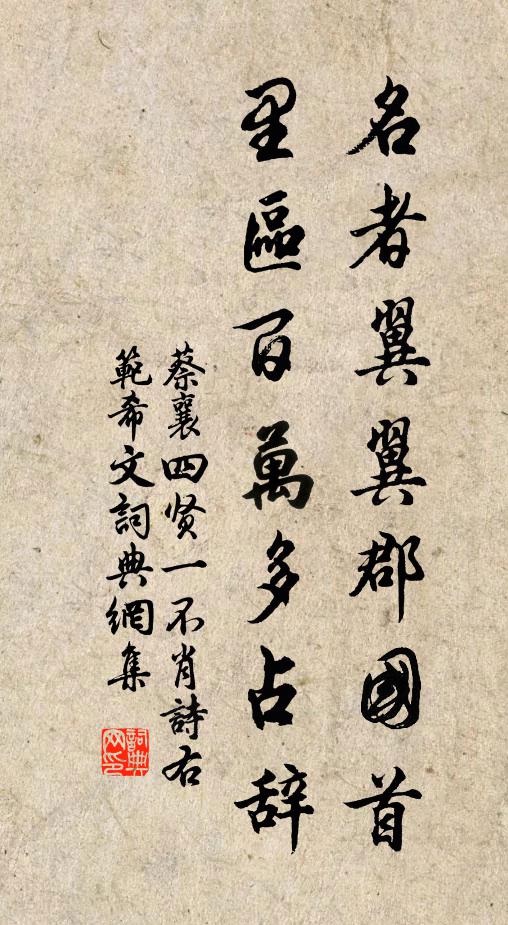 名者翼翼郡國首
里區百萬多占辞
蔡襄四贤一不肖詩右
範希文詞典網集
詞典
网印